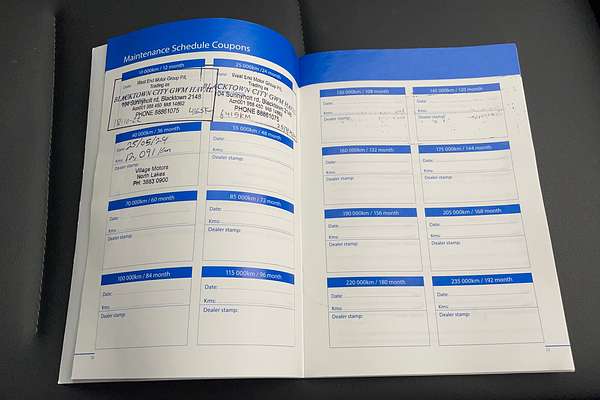 Maintenance Schedule Coupons
10 000km / 12 month
West End Motor Group P/L
Trading as
BLACKTOWN CITY GWM HAVAL
Sunnyholt rd, Blacktown 2148
PHONE 88861075
18-10-22
25 000km / 24 month
West End Motor Group P/L
Trading as
BLACKTOWN CITY GWM HAVAL
Sunnyholt rd, Blacktown 2148
PHONE 88861075
40 000km / 36 month
25/05/24
Kms: 12,091 km
Dealer stamp:
Village Motors
North Lakes
PH: 3883 0900
55 000km / 48 month
Date:
Kms:
Dealer stamp:
70 000km / 60 month
Date:
Kms:
Dealer stamp:
85 000km / 72 month
Date:
Kms:
Dealer stamp:
100 000km / 84 month
Date:
Kms:
Dealer stamp:
115 000km / 96 month
Date:
Kms:
Dealer stamp:
130 000km / 108 month
Date:
Kms:
Dealer stamp:
145 000km / 120 month
Date:
Kms:
Dealer stamp:
160 000km / 132 month
Date:
Kms:
Dealer stamp:
175 000km / 144 month
Date:
Kms:
Dealer stamp:
190 000km / 156 month
Date:
Kms:
Dealer stamp:
205 000km / 168 month
Date:
Kms:
Dealer stamp:
220 000km / 180 month
Date:
Kms:
Dealer stamp:
235 000km / 192 month
Date:
Kms:
Dealer stamp: